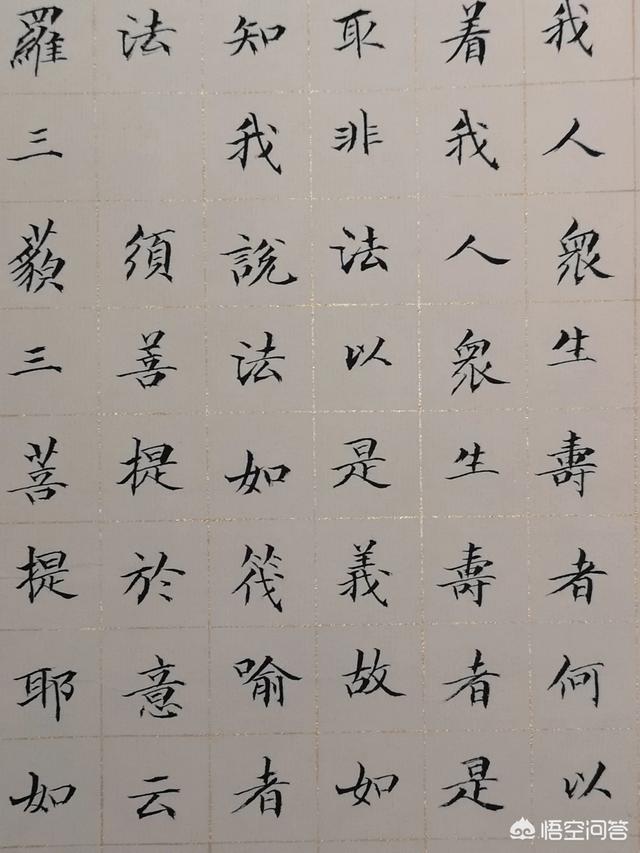 我人衆生壽者何以
着我人衆生壽者是
取非法以是義故如
知我說法如筏喻者
法 須善提於意云
羅三藐三菩提耶如
悟空问答